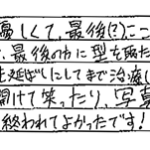 優しくて、最後(?)にこ
、最後の方に型を取た
先延ばしにしてまで治療し
開けて笑ったり、写真
終われてよかったです!